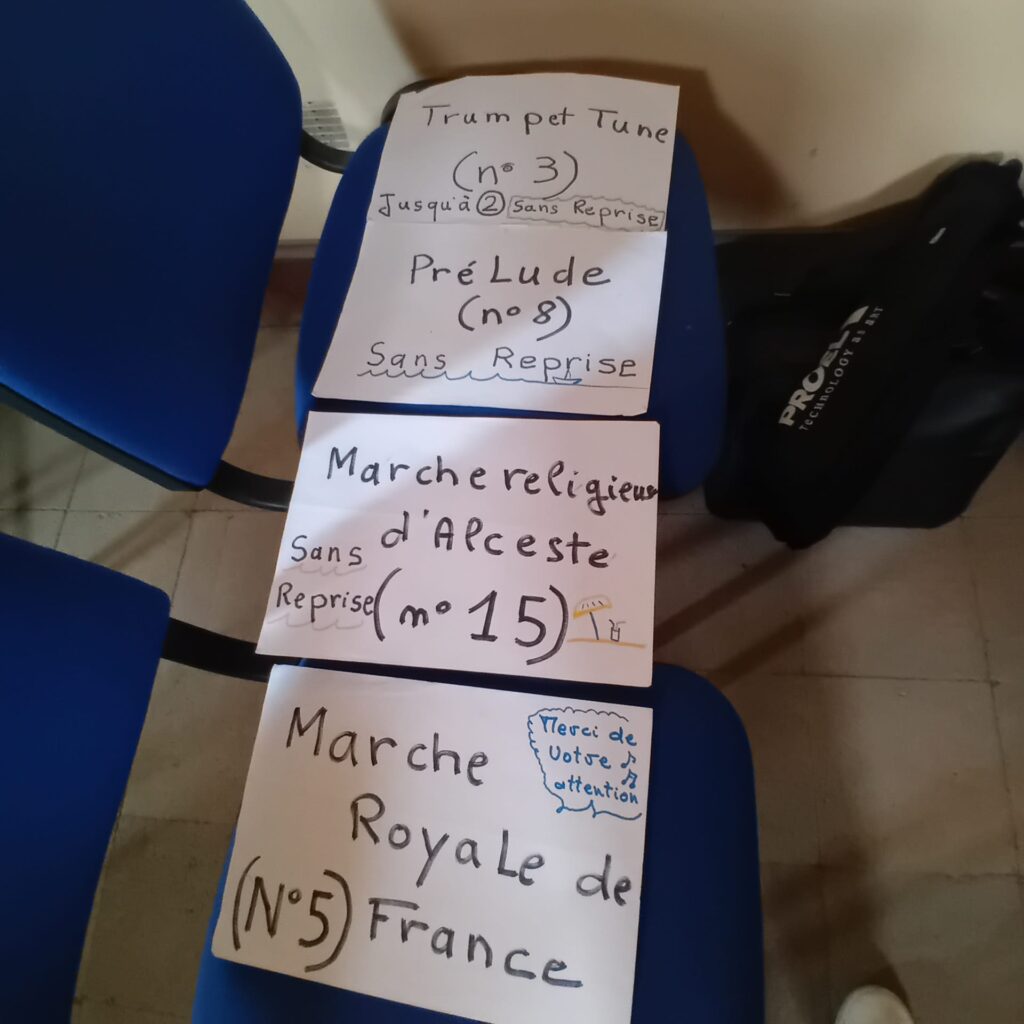 Trumpet Tune
(n° 3)
Jusqu'à ② Sans Reprise
Prélude
(n° 8)
Sans Reprise
Marche religieuse
d'Alceste
Sans
Reprise (n° 15)
Marche
Royale de
(N°5) France
Merci de
Votre
attention
PROEL
TECHNOLOGY as ART